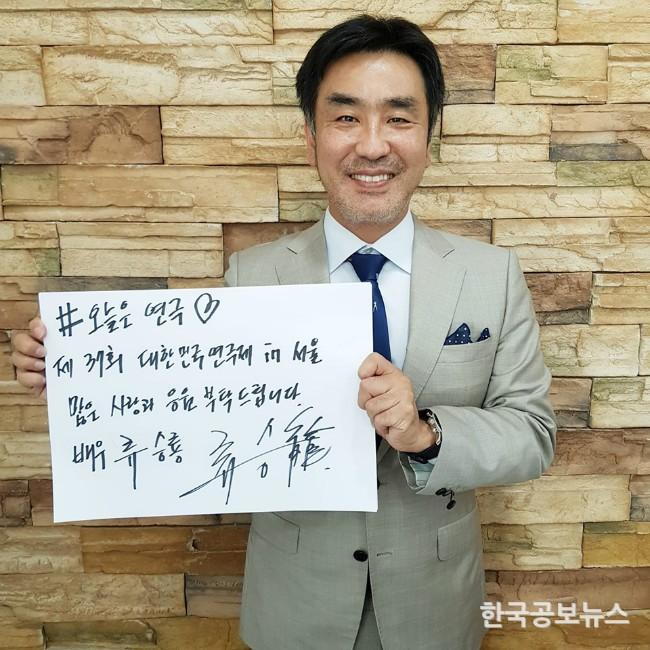 #오늘은 연극♡
제 37회 대한민국연극제 in 서울
많은 사랑과 응원 부탁드립니다.
배우 류승룡 류승龍
한국공보뉴스